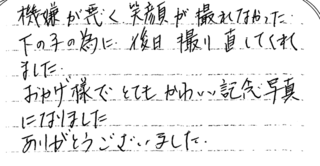 機嫌が悪く笑顔が撮れなかった
下の子の為に 後日 撮り直してくれ
ました.
おかげ様で とても かわいい記念写真
になりました
ありがとうございました.